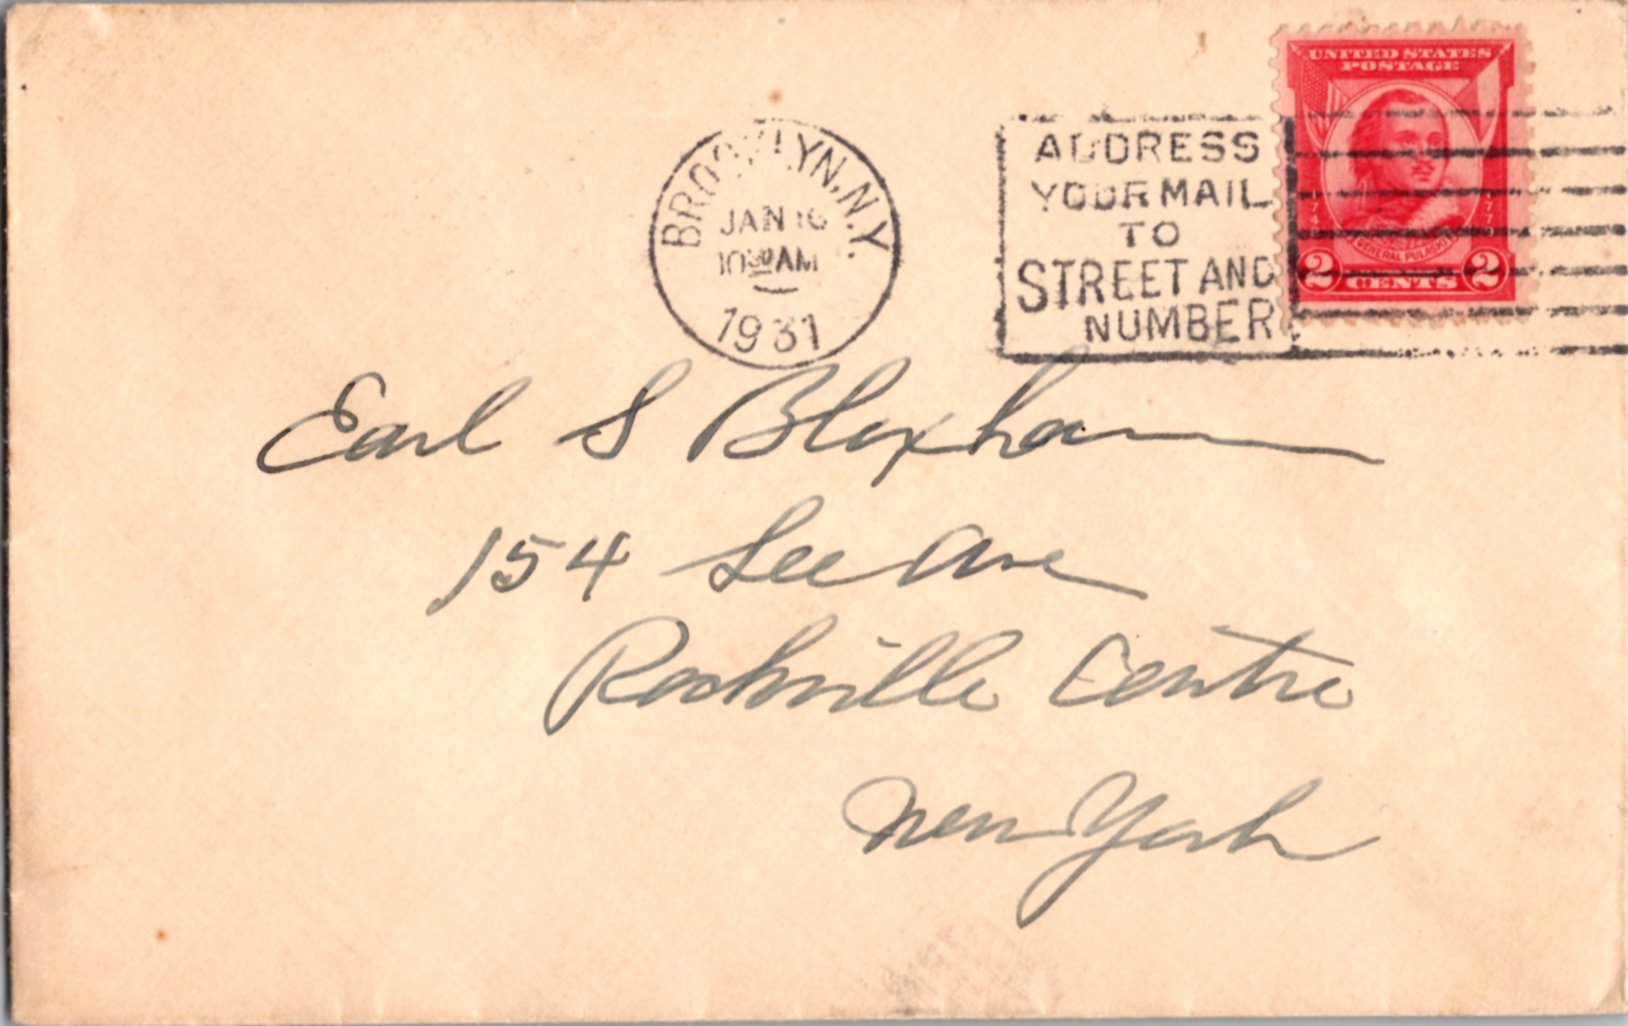 UNITED STATES
POSTAGE
GENERAL PULASKI
2 CENTS 2
BROOKLYN, N.Y.
JAN 16
10 30 AM
1931
ADDRESS
YOUR MAIL
TO
STREET AND
NUMBER
Earl S Bloxham
154 Lee Ave
Rockville Centre
New York